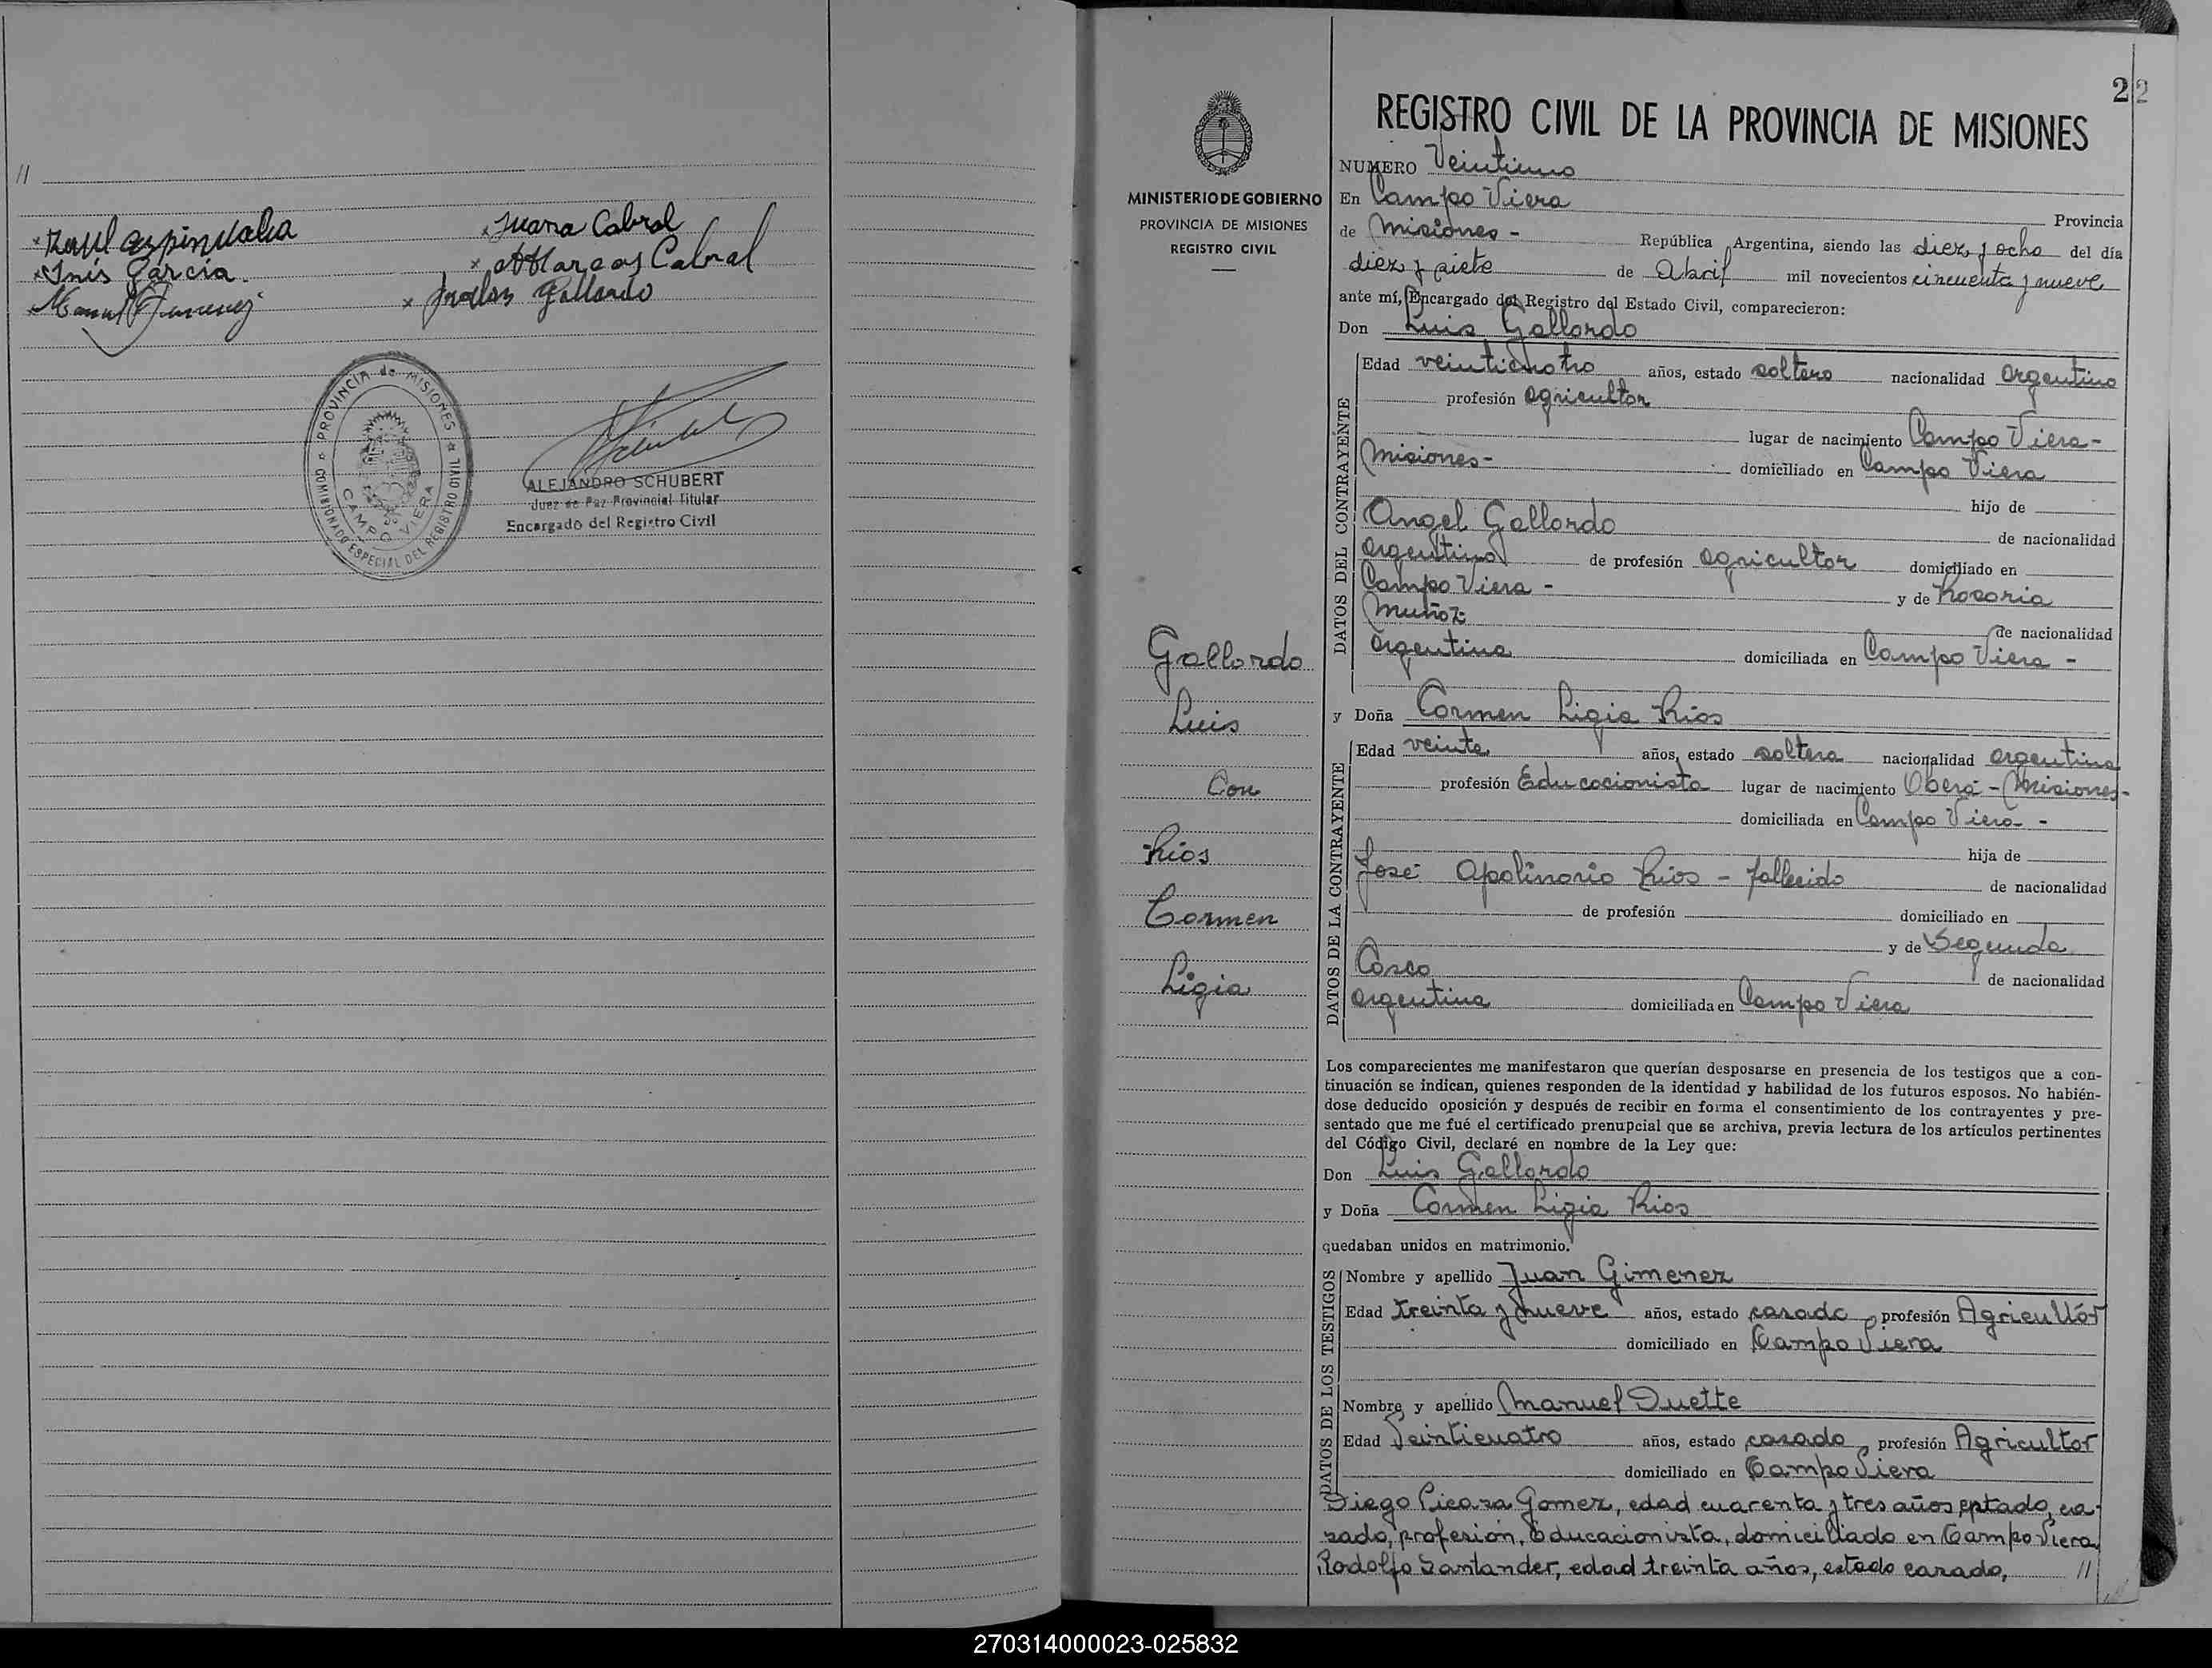 //
Juana Cabral
Inis García
Marcos Cabral
Gallardo
PROVINCIA de MISIONES
COMISIONADO ESPECIAL DEL REGISTRO CIVIL
CAMPO VIERA
ALEJANDRO SCHUBERT
Juez de Paz Provincial Titular
Encargado del Registro Civil
22
MINISTERIO DE GOBIERNO
PROVINCIA DE MISIONES
REGISTRO CIVIL
Gallardo
Luis
Con
Rios
Carmen
Ligia
REGISTRO CIVIL DE LA PROVINCIA DE MISIONES
NUMERO Veintiuno
En Campo Viera
Provincia
de Misiones - República Argentina, siendo las diez y ocho del día
diez y siete de Abril mil novecientos cincuenta y nueve
ante mí, Encargado del Registro del Estado Civil, comparecieron:
Don Luis Gallardo
DATOS DEL CONTRAYENTE
Edad veinticuatro años, estado soltero nacionalidad argentino
profesión agricultor
lugar de nacimiento Campo Viera -
Misiones - domiciliado en Campo Viera
hijo de
Angel Gallardo
de nacionalidad
argentino de profesión agricultor domiciliado en
Campo Viera - y de Rosaria
Muñoz
de nacionalidad
argentina domiciliada en Campo Viera -
y Doña Carmen Ligia Rios
DATOS DE LA CONTRAYENTE
Edad veinte años, estado soltera nacionalidad argentina
profesión Educacionista lugar de nacimiento Oberá - Misiones -
domiciliada en Campo Viera -
hija de
José Apolinario Rios - fallecido
de nacionalidad
de profesión domiciliado en
y de Segunda
de nacionalidad
argentina domiciliada en Campo Viera
Los comparecientes me manifestaron que querían desposarse en presencia de los testigos que a con-
tinuación se indican, quienes responden de la identidad y habilidad de los futuros esposos. No habién-
dose deducido oposición y después de recibir en forma el consentimiento de los contrayentes y pre-
sentado que me fué el certificado prenupcial que se archiva, previa lectura de los artículos pertinentes
del Código Civil, declaré en nombre de la Ley que:
Don Luis Gallardo
y Doña Carmen Ligia Rios
quedaban unidos en matrimonio.
DATOS DE LOS TESTIGOS
Nombre y apellido Juan Gimenez
Edad treinta y nueve años, estado casado, profesión Agricultór
domiciliado en Campo Viera
Nombre y apellido Manuel Duette
Edad Veinticuatro años, estado casado, profesión Agricultor
domiciliado en Campo Viera
Diego Picaza Gomez, edad cuarenta y tres años, estado, ca-
sado, profesión, Educacionista, domiciliado en Campo Viera
Rodolfo Santander, edad treinta años, estado casado, //
270314000023-025832